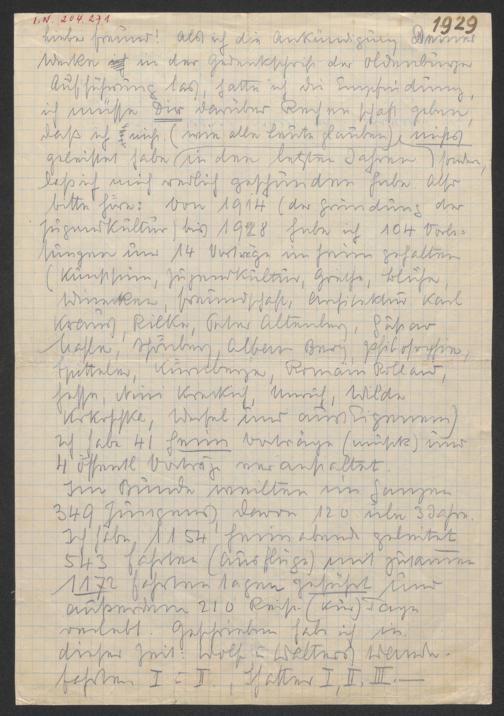 I.N. 204.271
1929
Liebe Freund! Als ich die Ankündigung Deiner
Werke in der Gedenkschrift der Oldenburger
Aufführung las, hatte ich die Empfindung,
ich müsse Dir darüber Rechenschaft geben,
daß ich nicht (wie alle Leute glauben) nichts
geleistet habe (in den letzten Jahren) sondern,
daß ich mich redlich geschunden habe. Also
bitte höre: Von 1914 (der Gründung der
Jugendkultur) bis 1928 habe ich 104 Vorle-
sungen und 14 Vorträge im Heim gehalten
(Jugendkultur, Goethe, Blüher,
Wyneken, Freundschaft, Architektur, Karl
Kraus, Rilke, Peter Altenberg, Gustav
Mahler, Schönberg, Alban Berg, Philosophie,
Spitteler, Romain Rolland,
Hesse, Wilde
Kokoschka, Werfel und
Ich habe 41 Heim Vorträge (Musik) und
4 öffentl Vorträge veranstaltet.
Im Bunde weilten im Ganzen
349 Jungens, davon 120 über 3 Jahre.
Ich habe 1154 Heimabende geleitet
543 Fahrten (Ausflüge) mit zusammen
1172 Fahrtentagen geführt und
außerdem 210 Reise Tage
verlebt. Geschrieben habe ich in
dieser Zeit: Wolf Walters Wander-
fahrten I – II, I, II, III. —